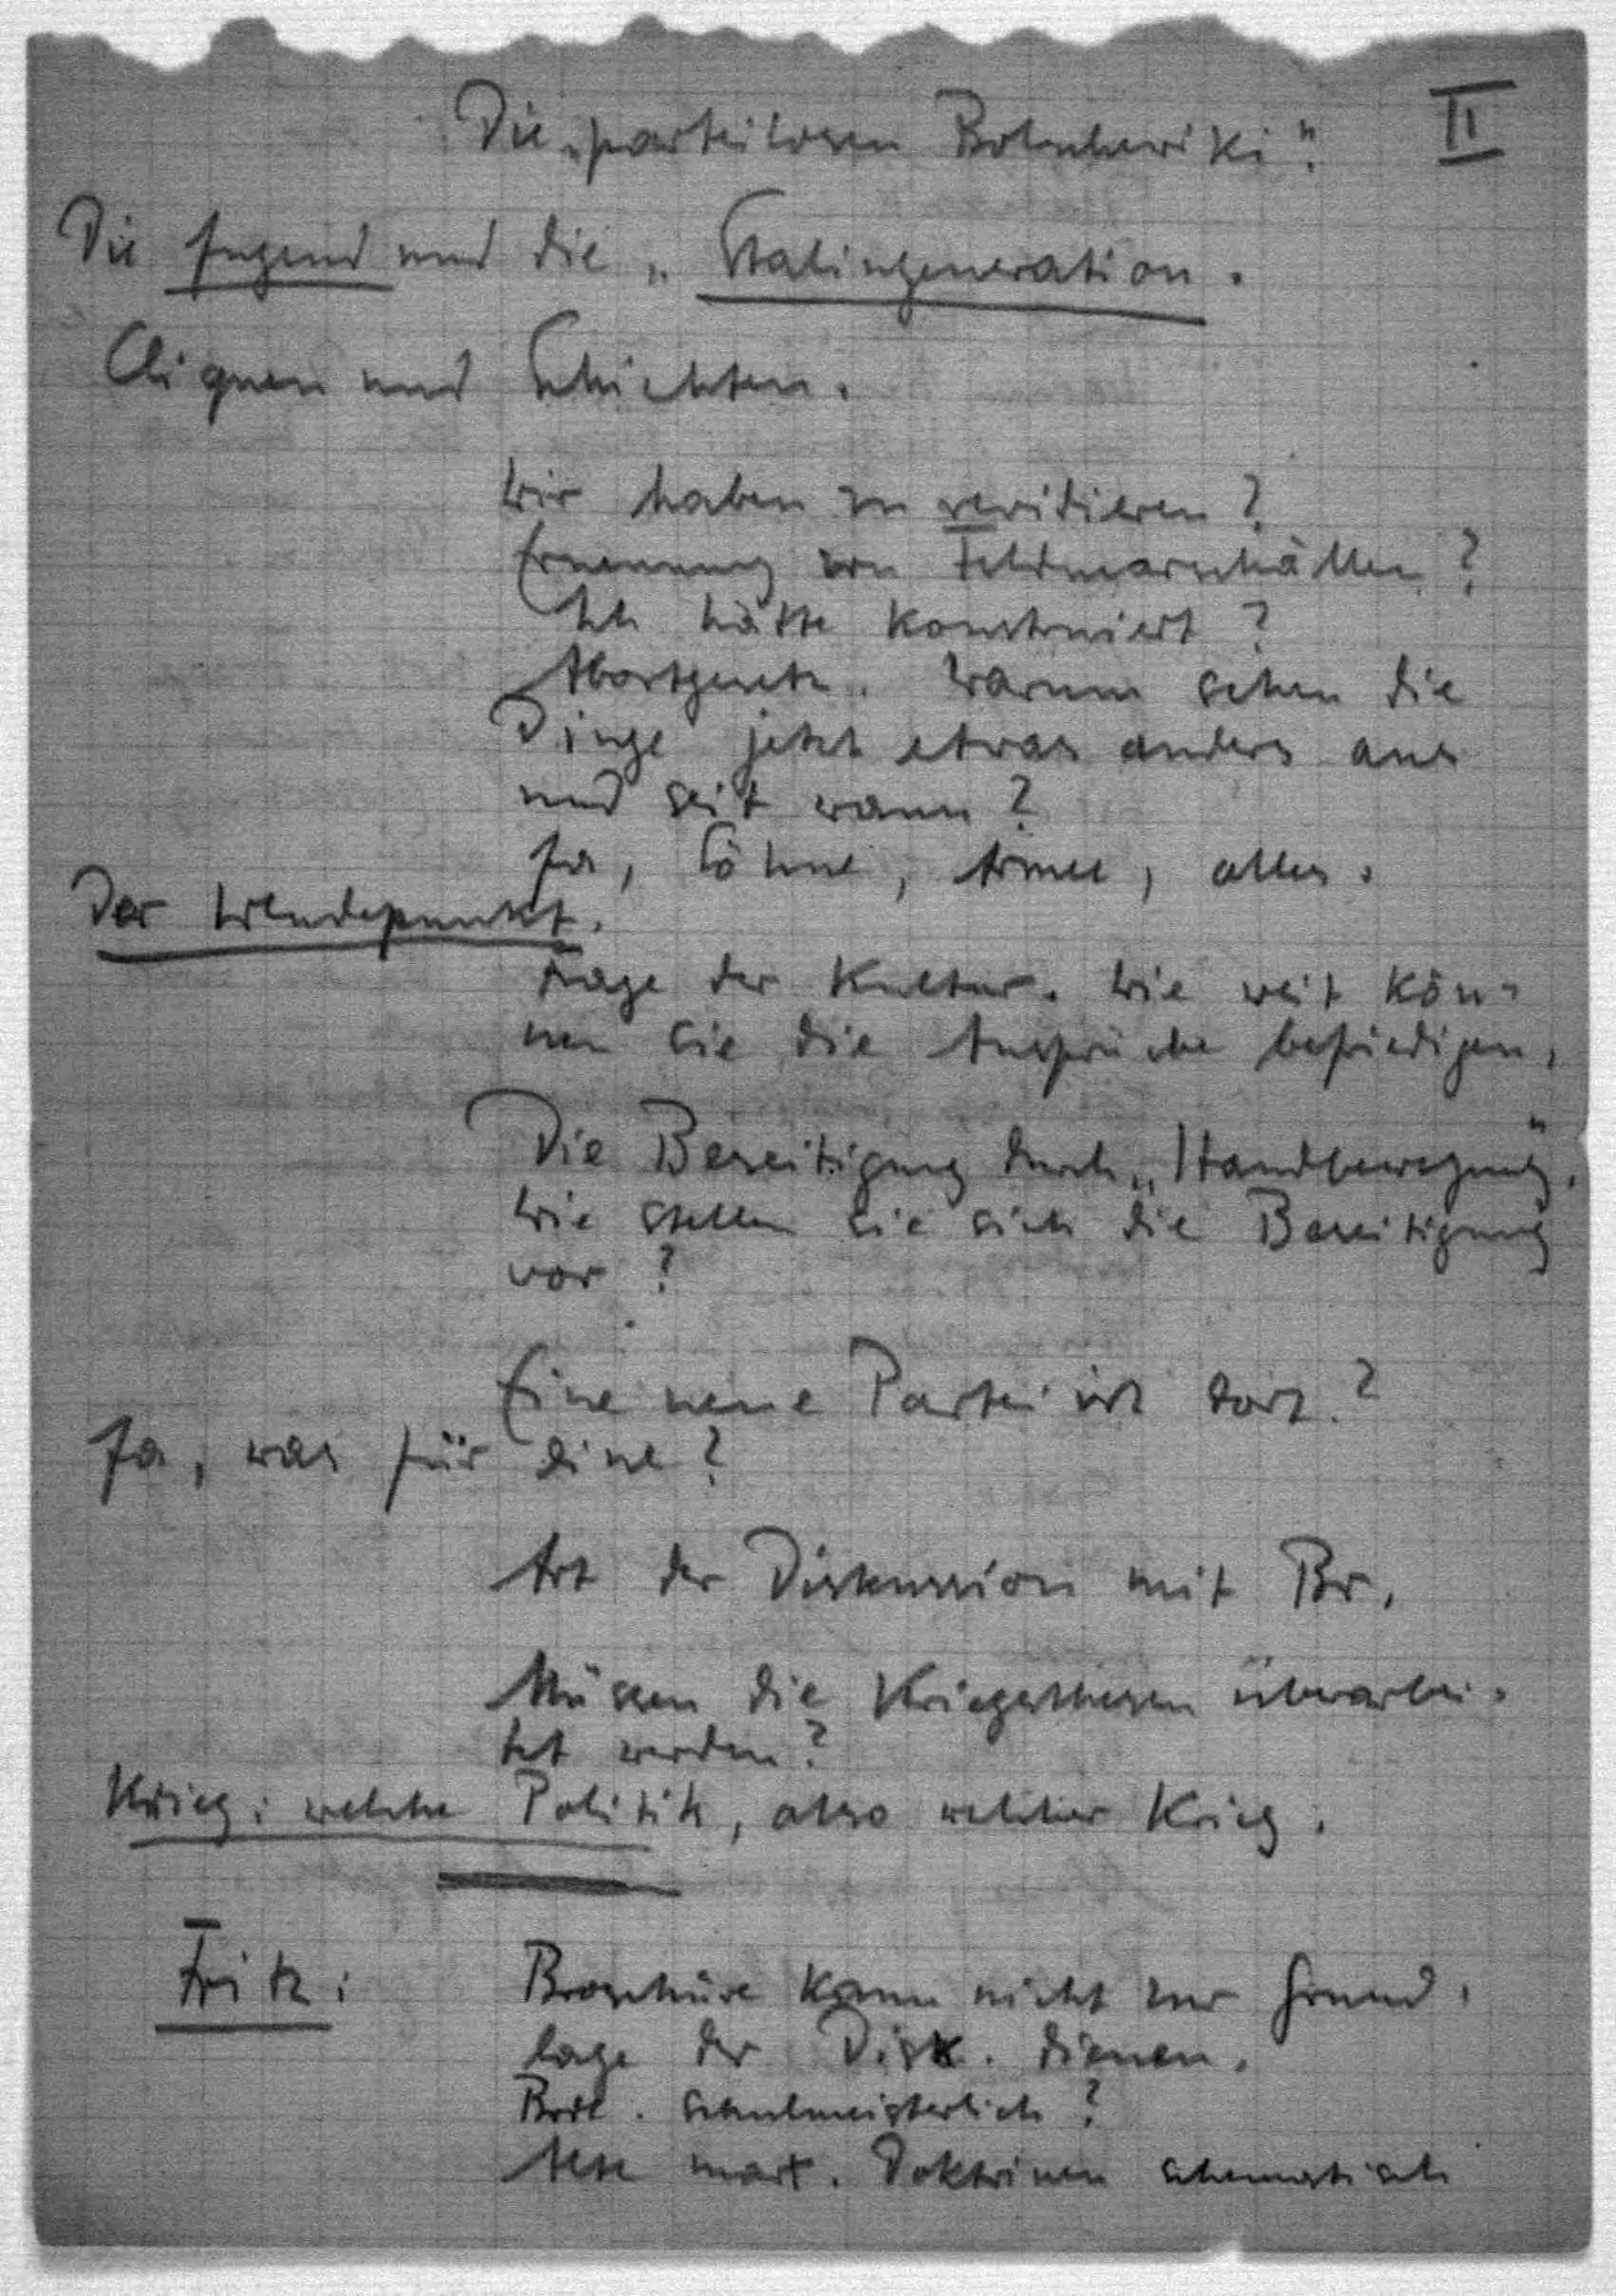 Die „parteilosen Bolschewiki“. II
Die Jugend und die „Stalingeneration.
Cliquen und Schichten.
Wir haben zu revidieren?
Ernennung von Feldmarschällen?
Ich hätte konstruiert?
Abortgesetz. Warum sehen die
Dinge jetzt etwas anders aus
und seit wann?
Ja, Söhne, Armee, alles.
Der Wendepunkt.
Frage der Kultur. Wie weit kön-
nen sie die Ansprüche befriedigen.
Die Beseitigung durch „Handbewegung“.
Wie stellen sie sich die Beseitigung
vor?
Eine neue Partei ist dort?
Ja, was für eine?
Art der Diskussion mit Br.
Müssen die Kriegsthesen überarbei-
tet werden?
Krieg: welche Politik, also welcher Krieg.
Fritz: Broschüre kann nicht zur Grund-
lage der Disk. dienen.
schulmeisterlich?
Alte marx. Doktrinen schematisch